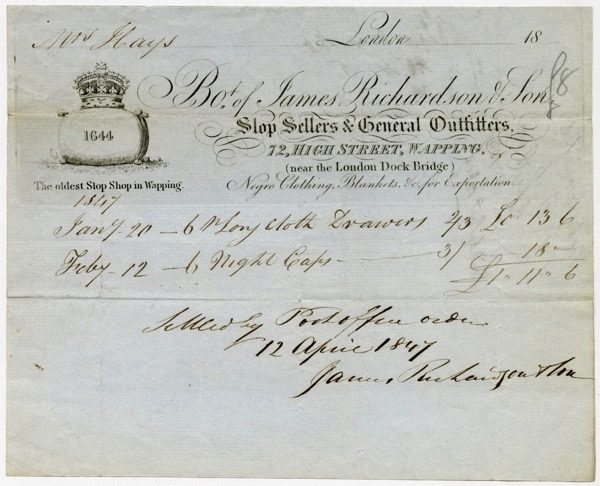 Mrs Hays London 18
Bot. of James Richardson & Son,
Slop Sellers & General Outfitters,
1644
72, HIGH STREET, WAPPING,
(near the London Dock Bridge)
The oldest Slop Shop in Wapping.
Negro Clothing, Blankets, &c. for Exportation.
1847
Jany 20 — 6 Pr Long Cloth Drawers 2/3 £0 13 6
Feby 12 — 6 Night Caps — 3/ 18 "
£1 " 11 " 6
Settled by Post office order
12 April 1847
James Richardson & Son